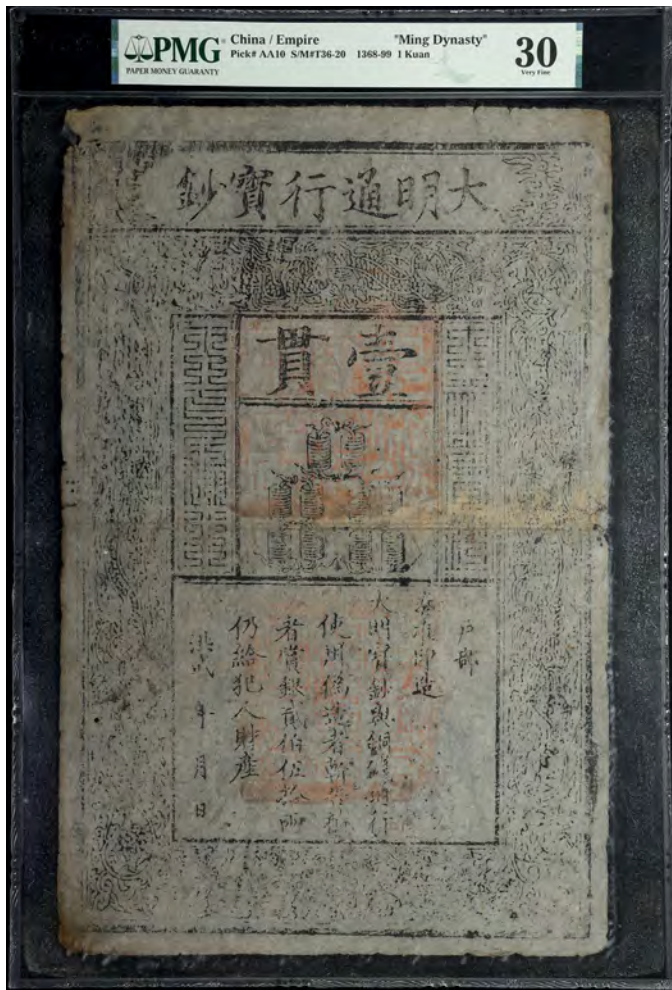 PMG
PAPER MONEY GUARANTY
China / Empire "Ming Dynasty"
Pick# AA10 S/M#T36-20 1368-99 1 Kuan
30
Very Fine
大明通行寶鈔
壹貫
戶部
奏准印造
大明寶鈔與銅錢通行
使用偽造者斬告捕
者賞銀貳伯伍拾兩
仍給犯人財產
洪武 年 月 日